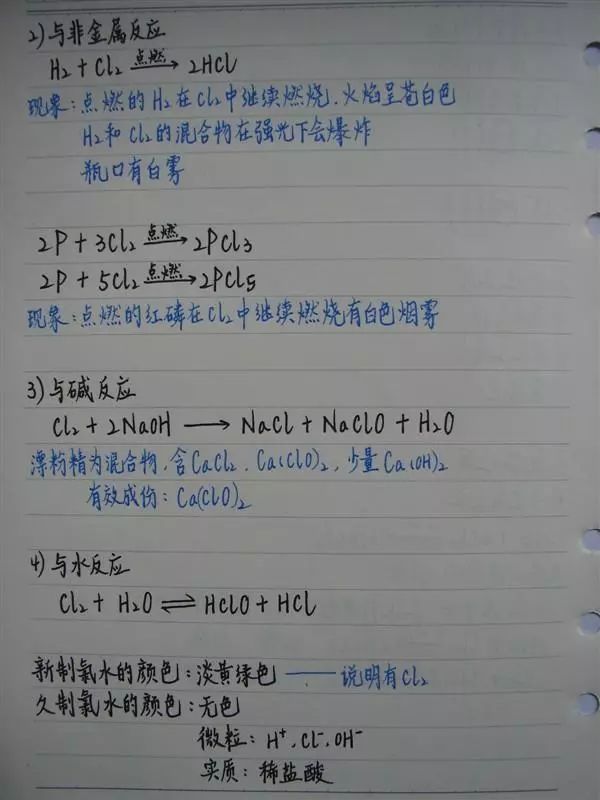 2) 与非金属反应
H₂ + Cl₂ 点燃→ 2HCl
现象: 点燃的H₂在Cl₂中继续燃烧, 火焰呈苍白色
H₂和Cl₂的混合物在强光下会爆炸
瓶口有白雾
2P + 3Cl₂ 点燃→ 2PCl₃
2P + 5Cl₂ 点燃→ 2PCl₅
现象: 点燃的红磷在Cl₂中继续燃烧有白色烟雾
3) 与碱反应
Cl₂ + 2NaOH → NaCl + NaClO + H₂O
漂粉精为混合物, 含CaCl₂, Ca(ClO)₂, 少量Ca(OH)₂
有效成份: Ca(ClO)₂
4) 与水反应
Cl₂ + H₂O ⇌ HClO + HCl
新制氯水的颜色: 淡黄绿色 —— 说明有Cl₂
久制氯水的颜色: 无色
微粒: H⁺, Cl⁻, OH⁻
实质: 稀盐酸